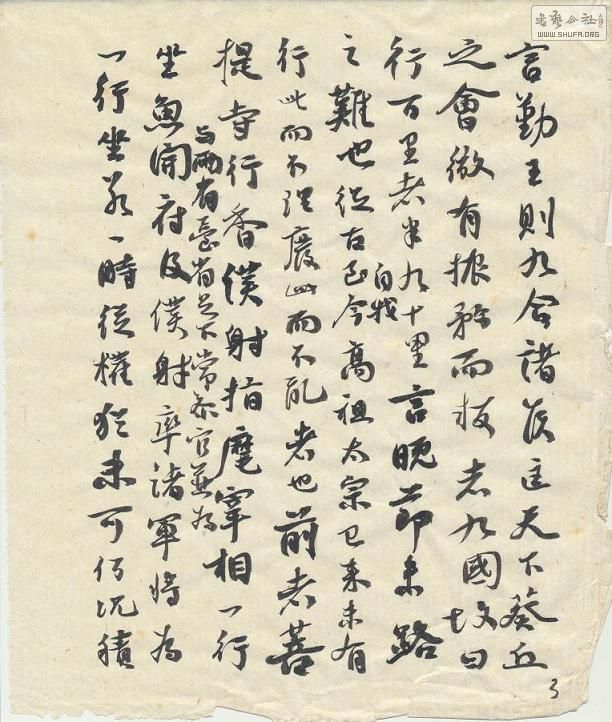 書藝公社
WWW.SHUFA.ORG
言勤王則九合諸侯匡天下葵丘
之會微有振矜而叛者九國故曰
行百里者半九十里言晚節末路
自我
之難也從古至今高祖太宗已來未有
行此而不理廢此而不亂者也前者菩
提寺行香僕射指麾宰相一行
與兩省臺省已下常參官並為
坐魚開府及僕射率諸軍將為
一行坐若一時從權猶未可何況積
3